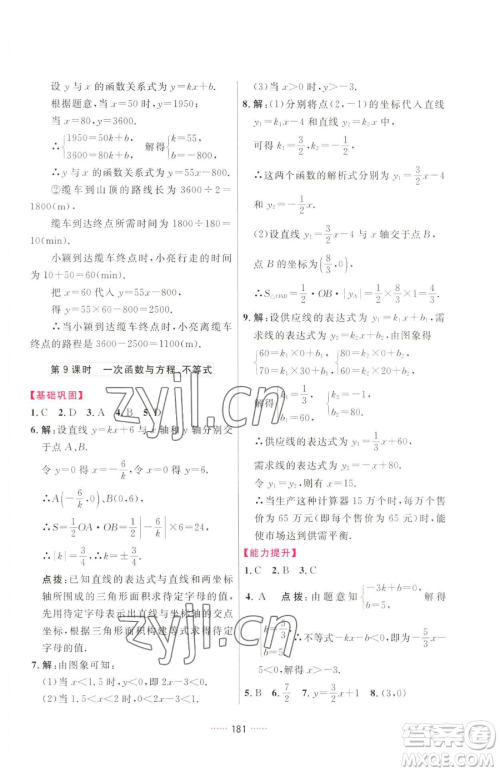 设 y 与 x 的函数关系式为 y=kx+b.
根据题意,当 x=50 时,y=1950;
当 x=80,y=3600.
∴{1950=50k+b, 3600=80k+b, 解得{k=55, b=-800,
∴y 与 x 的函数关系式为 y=55x-800.
②缆车到山顶的路线长为 3600÷2=
1800(m).
缆车到达终点所需时间为 1800÷180=
10(min).
小颖到达缆车终点时,小亮行走的时间
为 10+50=60(min).
把 x=60 代入 y=55x-800,
得 y=55×60-800=2500.
∴当小颖到达缆车终点时,小亮离缆车
终点的路程是 3600-2500=1100(m).
第 9 课时 一次函数与方程、不等式
【基础巩固】
1. C 2. D 3. A 4. B 5. D
6. 解:设直线 y=kx+6 与 x 轴和 y 轴分别交
于点 A、B.
令 y=0 得 x=-6/k,令 x=0 得 y=6.
∴A(-6/k,0),B(0,6).
∴S=1/2OA·OB=1/2×|-6/k|×6=24,
∴|k|=3/4,∴k=±3/4.
点拨:已知直线的表达式与直线和两坐标
轴所围成的三角形面积求待定字母的值,
先用待定字母表示出直线与坐标轴的交点
坐标,根据三角形面积构建等式求待定字
母的值.
7. 解:由图象可知:
(1)当 x<1.5 时,2x-3<0.
(2)当 1.5<x<2 时,0<2x-3<1.
(3)当 x>0 时,2x-3>-3.
8. 解:(1)分别将点(2,-1)的坐标代入直线
y₁=k₁x-4 和 y₂=k₂x 中,
可得 k₁=3/2,k₂=-1/2,
∴这两个函数的解析式分别为 y₁=3/2x-
4,y₂=-1/2x.
(2)设直线 y₁=3/2x-4 与 x 轴交于点 B,
点 B 的坐标为(8/3,0),
∴S△OAB=1/2·OB·|yA|=1/2×8/3×1=4/3.
9. 解:设供应线的表达式为 y₁=k₁x+b₁,需
求线的表达式为 y₂=k₂x+b₂,由图象得
{60=k₁×0+b₁, 70=k₁×30+b₁, {80=k₂×0+b₂, 70=k₂×10+b₂,
解得{k₁=1/3, b₁=60, {k₂=-1, b₂=80,
∴供应线的表达式为 y₁=1/3x+60,
需求线的表达式为 y₂=-x+80.
∴当生产这种计算器 15 万个时,每个售
价为 65 万元(当供求都为 65 万个时),能
使市场达到供需平衡.
【能力提升】
1. C 2. B 3. C
4. A 点拨:由题意知{-3k+b=0, b=5,解得
{k=5/3, b=5. ∴不等式-kx+b<0 即为-5/3x
+5<0,解得 x>3.
5. B 6. 7/2 7. y=3/2x+1 8. (3,0)
181
zyjl.cn
zyjl.cn
答案圈
MXQE.COM